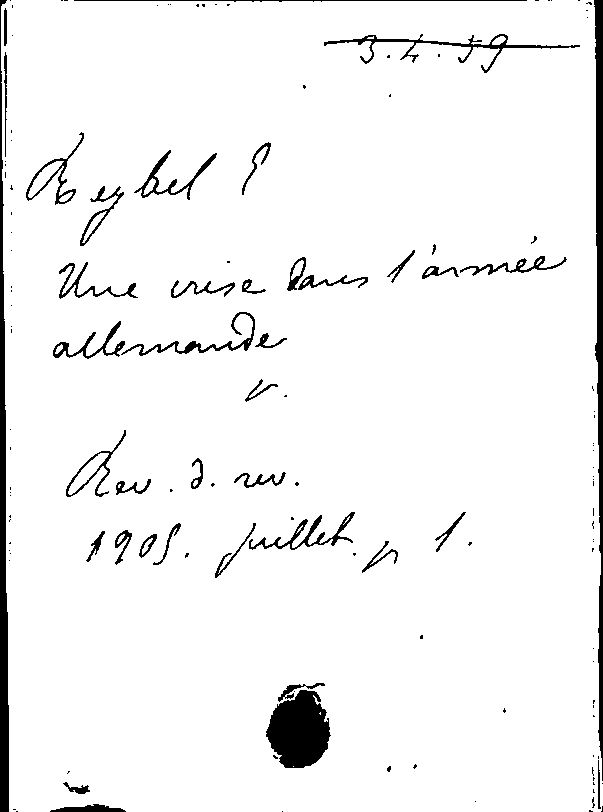 3.4.59
Reybel E
Une crise dans l'armée
allemande
v.
Rev. d. rev.
1905. juillet. p 1.